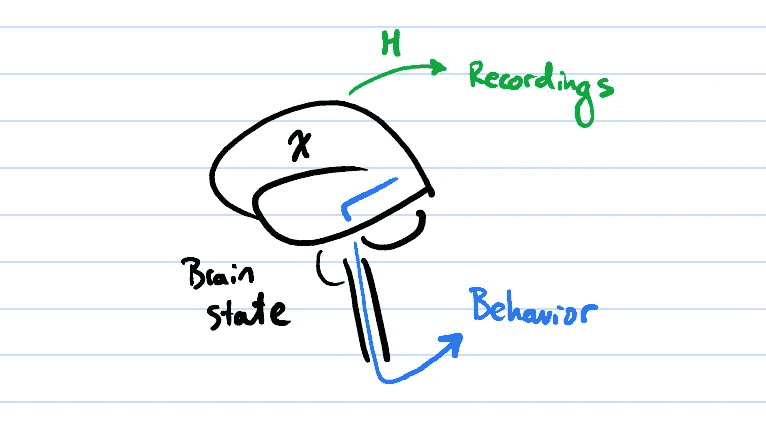 H
Recordings
x
Brain
state
Behavior